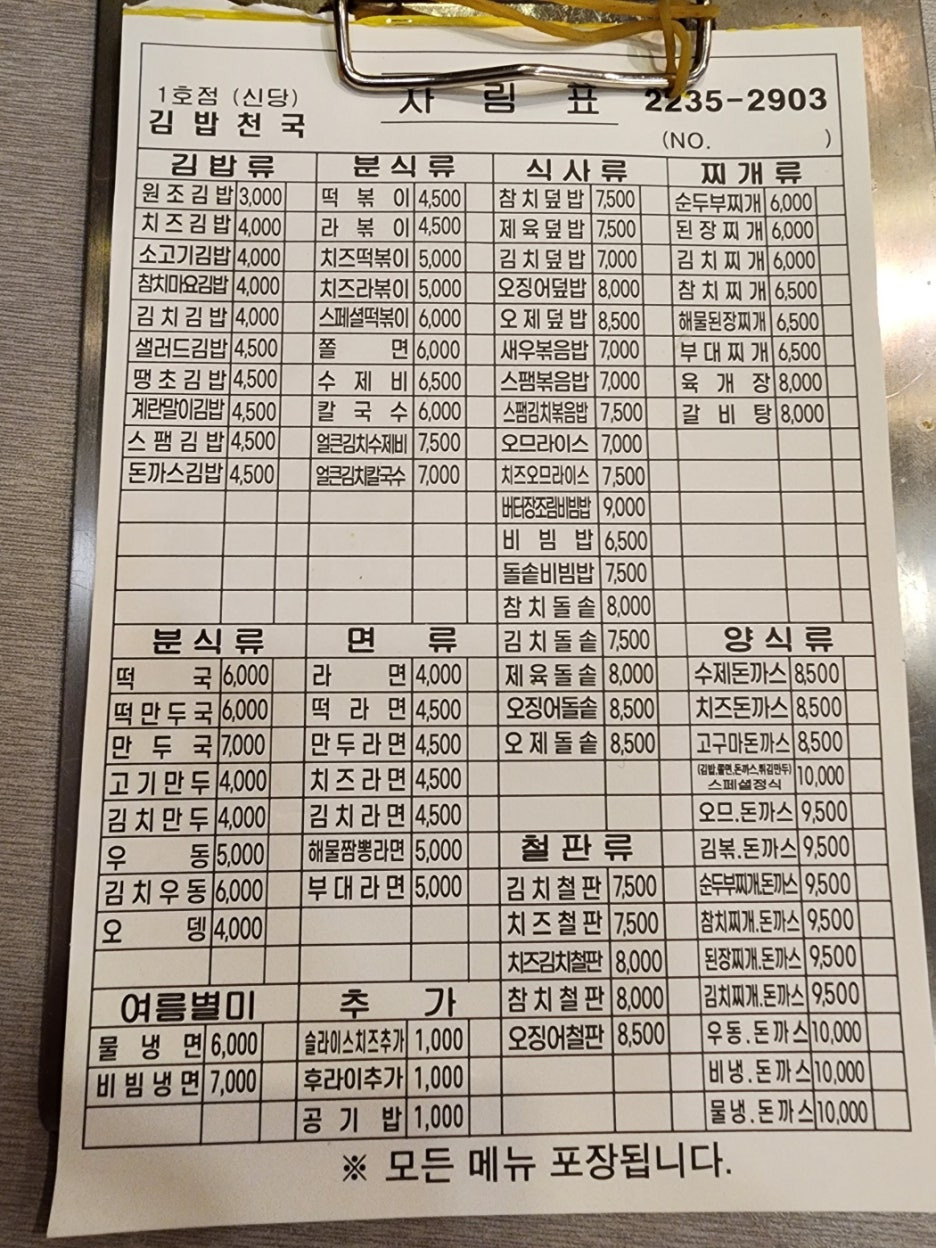 1호점 (신당)
김밥천국
차림표
2235-2903
(NO. )
김밥류
원조김밥 3,000
치즈김밥 4,000
소고기김밥 4,000
참치마요김밥 4,000
김치김밥 4,000
샐러드김밥 4,500
땡초김밥 4,500
계란말이김밥 4,500
스팸김밥 4,500
돈까스김밥 4,500
분식류
떡볶이 4,500
라볶이 4,500
치즈떡볶이 5,000
치즈라볶이 5,000
스페셜떡볶이 6,000
쫄면 6,000
수제비 6,500
칼국수 6,000
얼큰김치수제비 7,500
얼큰김치칼국수 7,000
식사류
참치덮밥 7,500
제육덮밥 7,500
김치덮밥 7,000
오징어덮밥 8,000
오제덮밥 8,500
새우볶음밥 7,000
스팸볶음밥 7,000
스팸김치볶음밥 7,500
오므라이스 7,000
치즈오므라이스 7,500
버터장조림비빔밥 9,000
비빔밥 6,500
돌솥비빔밥 7,500
참치돌솥 8,000
김치돌솥 7,500
제육돌솥 8,000
오징어돌솥 8,500
오제돌솥 8,500
찌개류
순두부찌개 6,000
된장찌개 6,000
김치찌개 6,000
참치찌개 6,500
해물된장찌개 6,500
부대찌개 6,500
육개장 8,000
갈비탕 8,000
분식류
떡국 6,000
떡만두국 6,000
만두국 7,000
고기만두 4,000
김치만두 4,000
우동 5,000
김치우동 6,000
오뎅 4,000
면류
라면 4,000
떡라면 4,500
만두라면 4,500
치즈라면 4,500
김치라면 4,500
해물짬뽕라면 5,000
부대라면 5,000
철판류
김치철판 7,500
치즈철판 7,500
치즈김치철판 8,000
참치철판 8,000
오징어철판 8,500
양식류
수제돈까스 8,500
치즈돈까스 8,500
고구마돈까스 8,500
(김밥,쫄면,돈까스,튀김만두)
스페셜정식 10,000
오므.돈까스 9,500
김볶.돈까스 9,500
순두부찌개.돈까스 9,500
참치찌개.돈까스 9,500
된장찌개.돈까스 9,500
김치찌개.돈까스 9,500
우동.돈까스 10,000
비냉.돈까스 10,000
물냉.돈까스 10,000
여름별미
물냉면 6,000
비빔냉면 7,000
추가
슬라이스치즈추가 1,000
후라이추가 1,000
공기밥 1,000
※ 모든 메뉴 포장됩니다.